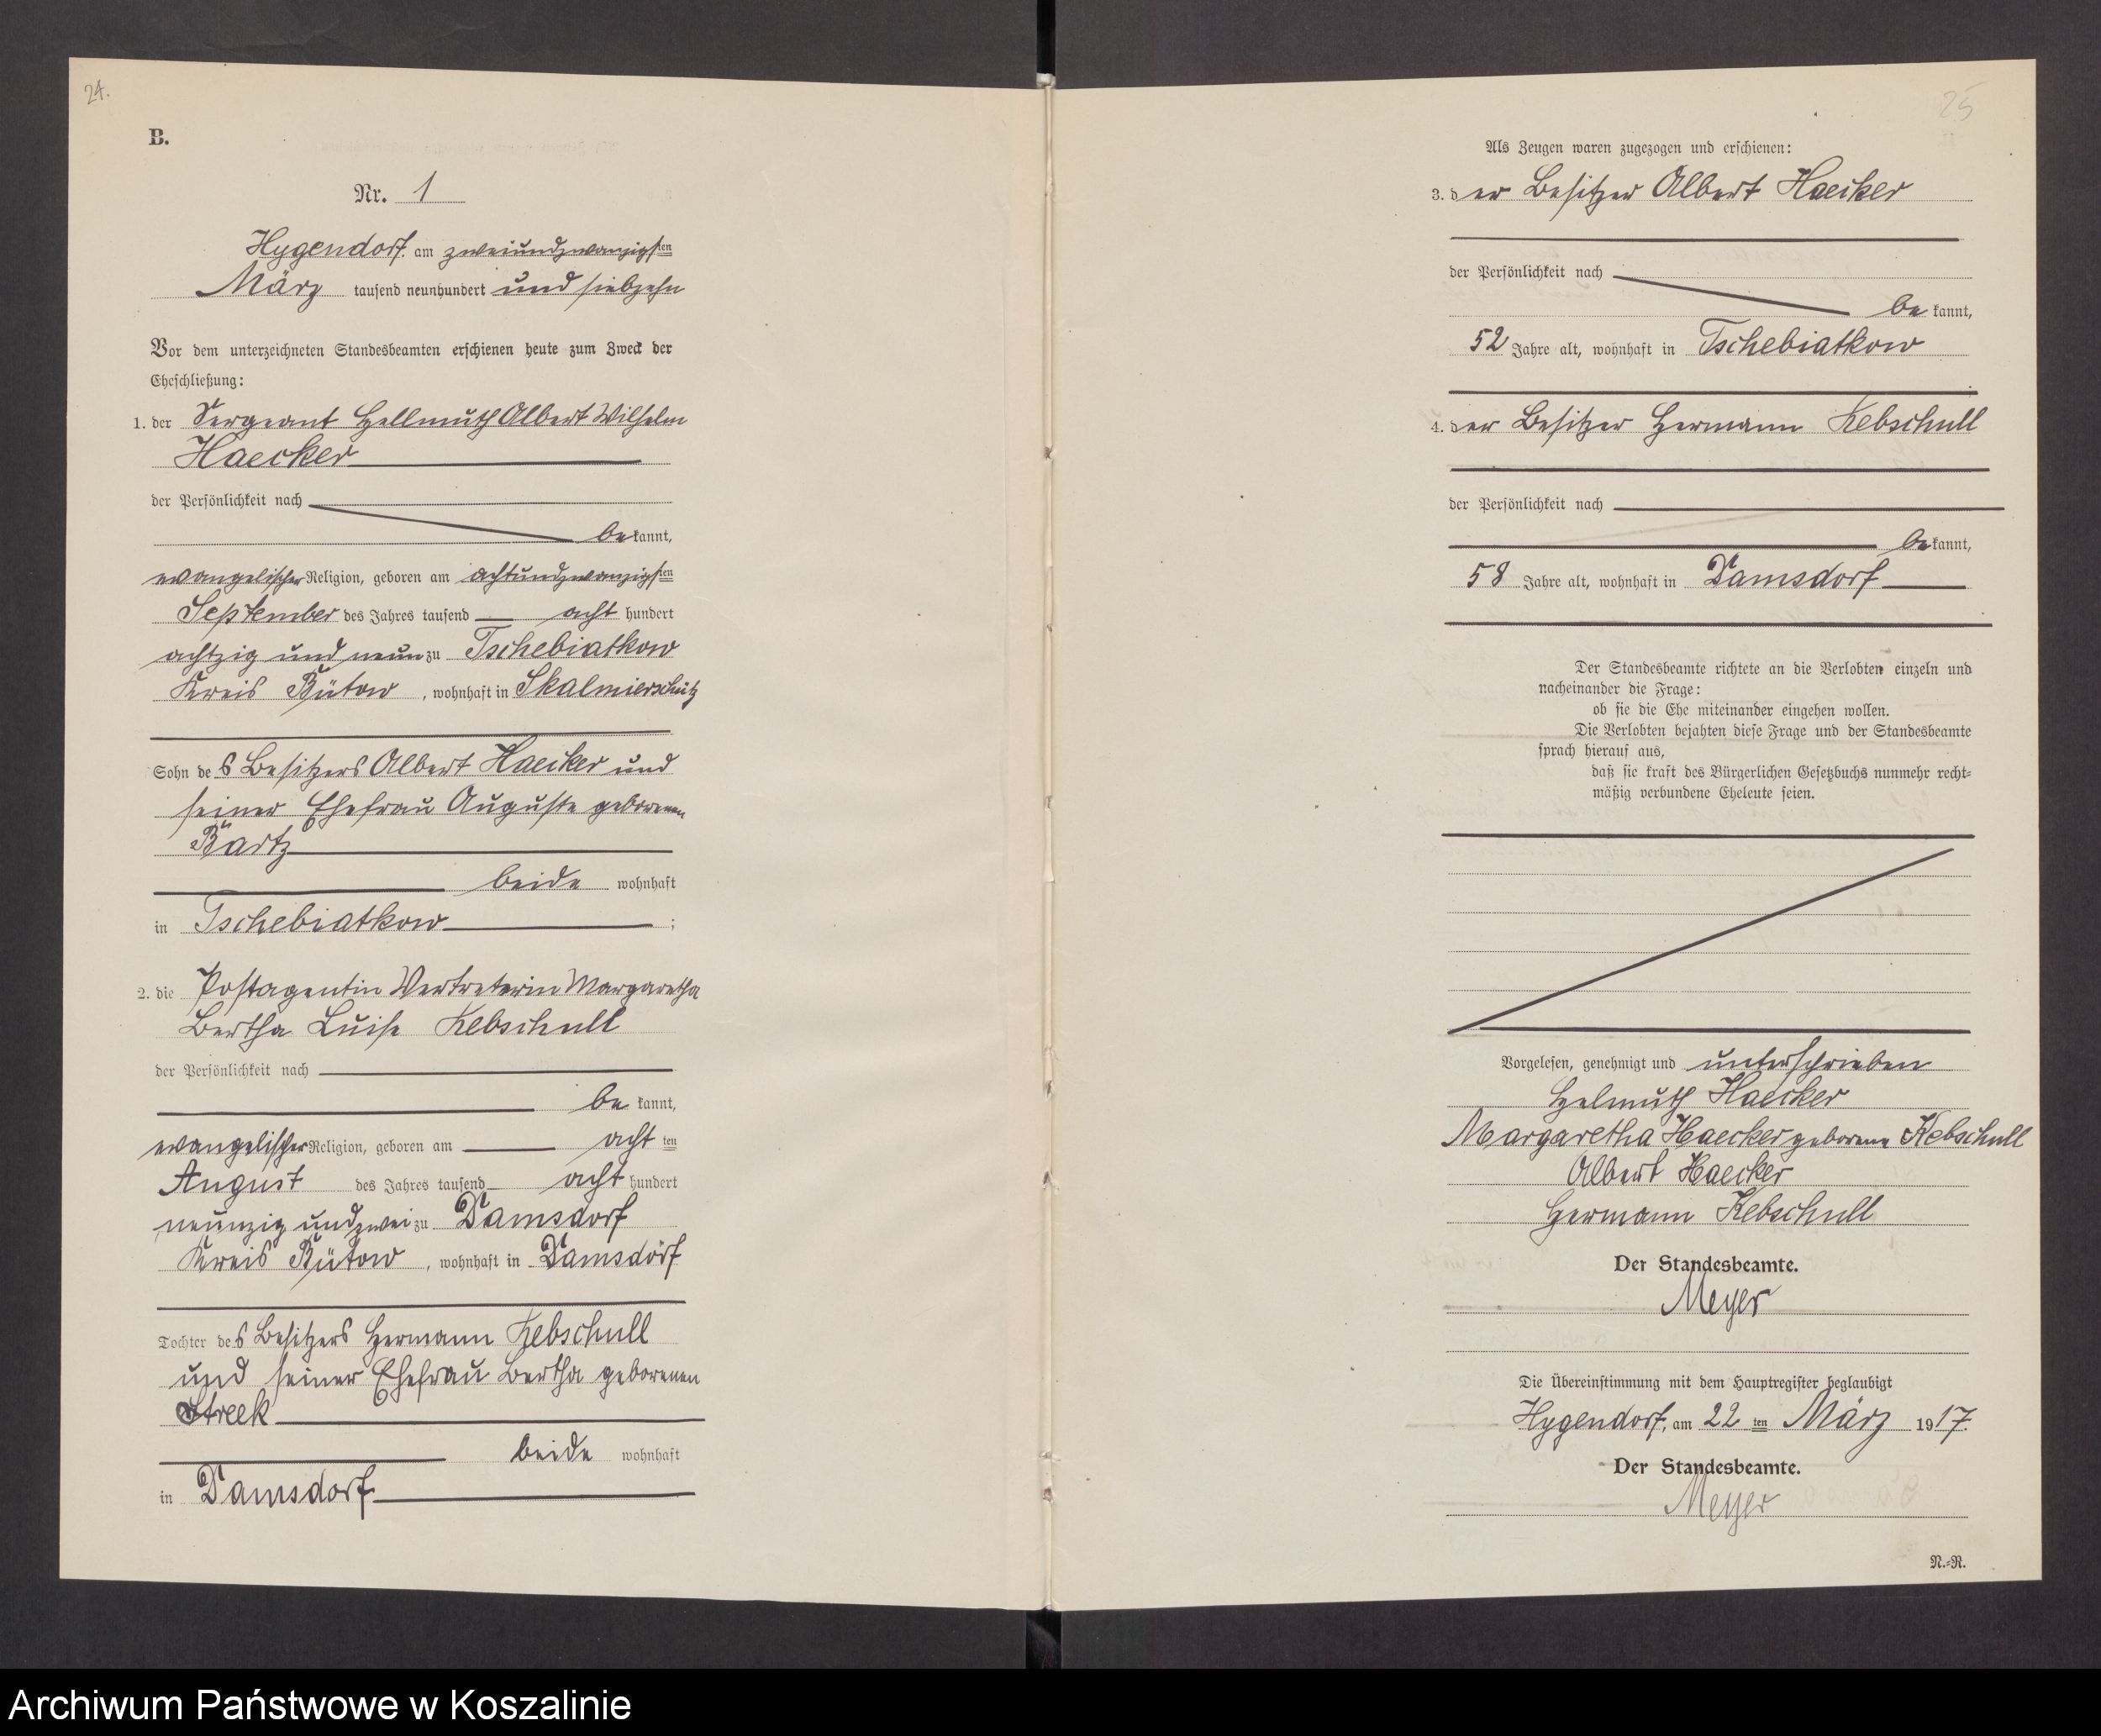 24.
B.
Nr. 1
Hygendorf am zweiundzwanzigsten
März tausend neunhundert und siebzehn
Vor dem unterzeichneten Standesbeamten erschienen heute zum Zweck der
Eheschließung:
1. der Sergeant Hellmuth Albert Wilhelm
Haecker
der Persönlichkeit nach
be kannt,
evangelischer Religion, geboren am achtundzwanzigsten
September des Jahres tausend acht hundert
achtzig und neun zu Tschebiatkow
Kreis Bütow, wohnhaft in Skalmierschütz
Sohn des Besitzers Albert Haecker und
seiner Ehefrau Auguste geborenen
Bartz
beide wohnhaft
in Tschebiatkow ;
2. die Postagentin Vertreterin Margaretha
Bertha Luise Kebschull
der Persönlichkeit nach
be kannt,
evangelischer Religion, geboren am acht ten
August des Jahres tausend acht hundert
neunzig und zwei zu Damsdorf
Kreis Bütow, wohnhaft in Damsdorf
Tochter des Besitzers Hermann Kebschull
und seiner Ehefrau Bertha geborenen
Streek
beide wohnhaft
in Damsdorf
25
Als Zeugen waren zugezogen und erschienen:
3. der Besitzer Albert Haecker
der Persönlichkeit nach
be kannt,
52 Jahre alt, wohnhaft in Tschebiatkow
4. der Besitzer Hermann Kebschull
der Persönlichkeit nach
be kannt,
58 Jahre alt, wohnhaft in Damsdorf
Der Standesbeamte richtete an die Verlobten einzeln und
nacheinander die Frage:
ob sie die Ehe miteinander eingehen wollen.
Die Verlobten bejahten diese Frage und der Standesbeamte
sprach hierauf aus,
daß sie kraft des Bürgerlichen Gesetzbuchs nunmehr recht-
mäßig verbundene Eheleute seien.
Vorgelesen, genehmigt und unterschrieben
Helmuth Haecker
Margaretha Haecker geborene Kebschull
Albert Haecker
Hermann Kebschull
Der Standesbeamte.
Meyer
Die Übereinstimmung mit dem Hauptregister beglaubigt
Hygendorf, am 22 ten März 1917.
Der Standesbeamte.
Meyer
N.-R.
Archiwum Państwowe w Koszalinie